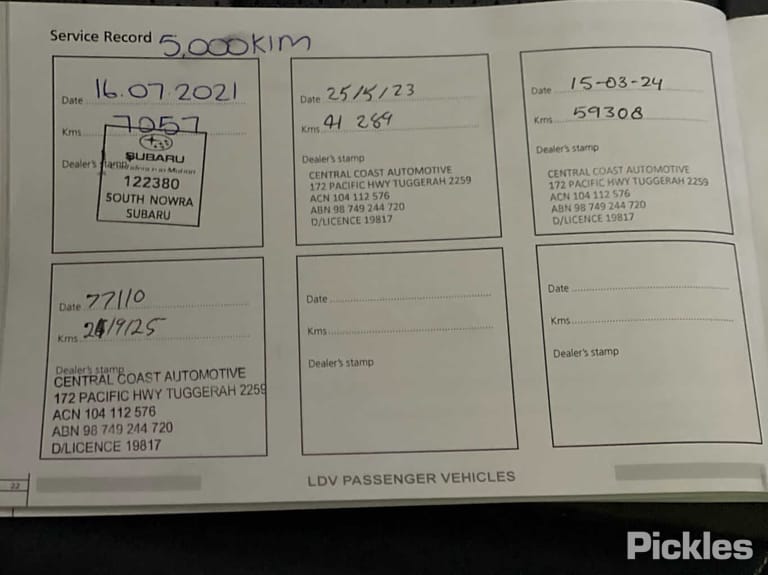 Service Record 5,000KIM
Date 16.07.2021
Kms 7057
Dealer's stamp
SUBARU
122380
SOUTH NOWRA
SUBARU
Date 25/5/23
Kms 41 289
Dealer's stamp
CENTRAL COAST AUTOMOTIVE
172 PACIFIC HWY TUGGERAH 2259
ACN 104 112 576
ABN 98 749 244 720
D/LICENCE 19817
Date 15-03-24
Kms 59308
Dealer's stamp
CENTRAL COAST AUTOMOTIVE
172 PACIFIC HWY TUGGERAH 2259
ACN 104 112 576
ABN 98 749 244 720
D/LICENCE 19817
Date 77110
Kms
Dealer's stamp
CENTRAL COAST AUTOMOTIVE
172 PACIFIC HWY TUGGERAH 2259
ACN 104 112 576
ABN 98 749 244 720
D/LICENCE 19817
Date
Kms
Dealer's stamp
Date
Kms
Dealer's stamp
22
LDV PASSENGER VEHICLES
Pickles